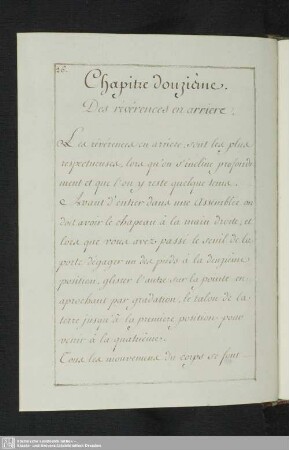 26.
Chapitre douzième.
Des révérences en arriere.
Les révérences en arriere, sont les plus
respectueuses, lors qu'on s'incline profondé
ment et que l'on y reste quelque tems.
Avant d'entrer dans une Assemblée on
doit avoir le chapeau à la main droite, et
lors que vous avez passé le seuil de la
porte dégager un des pieds à la deuxième
position, glisser l'autre sur la pointe en
aprochant par gradation, le talon de la
terre jusqu'à la première position pour
venir à la quatrième.
Tous les mouvemens du corps se font